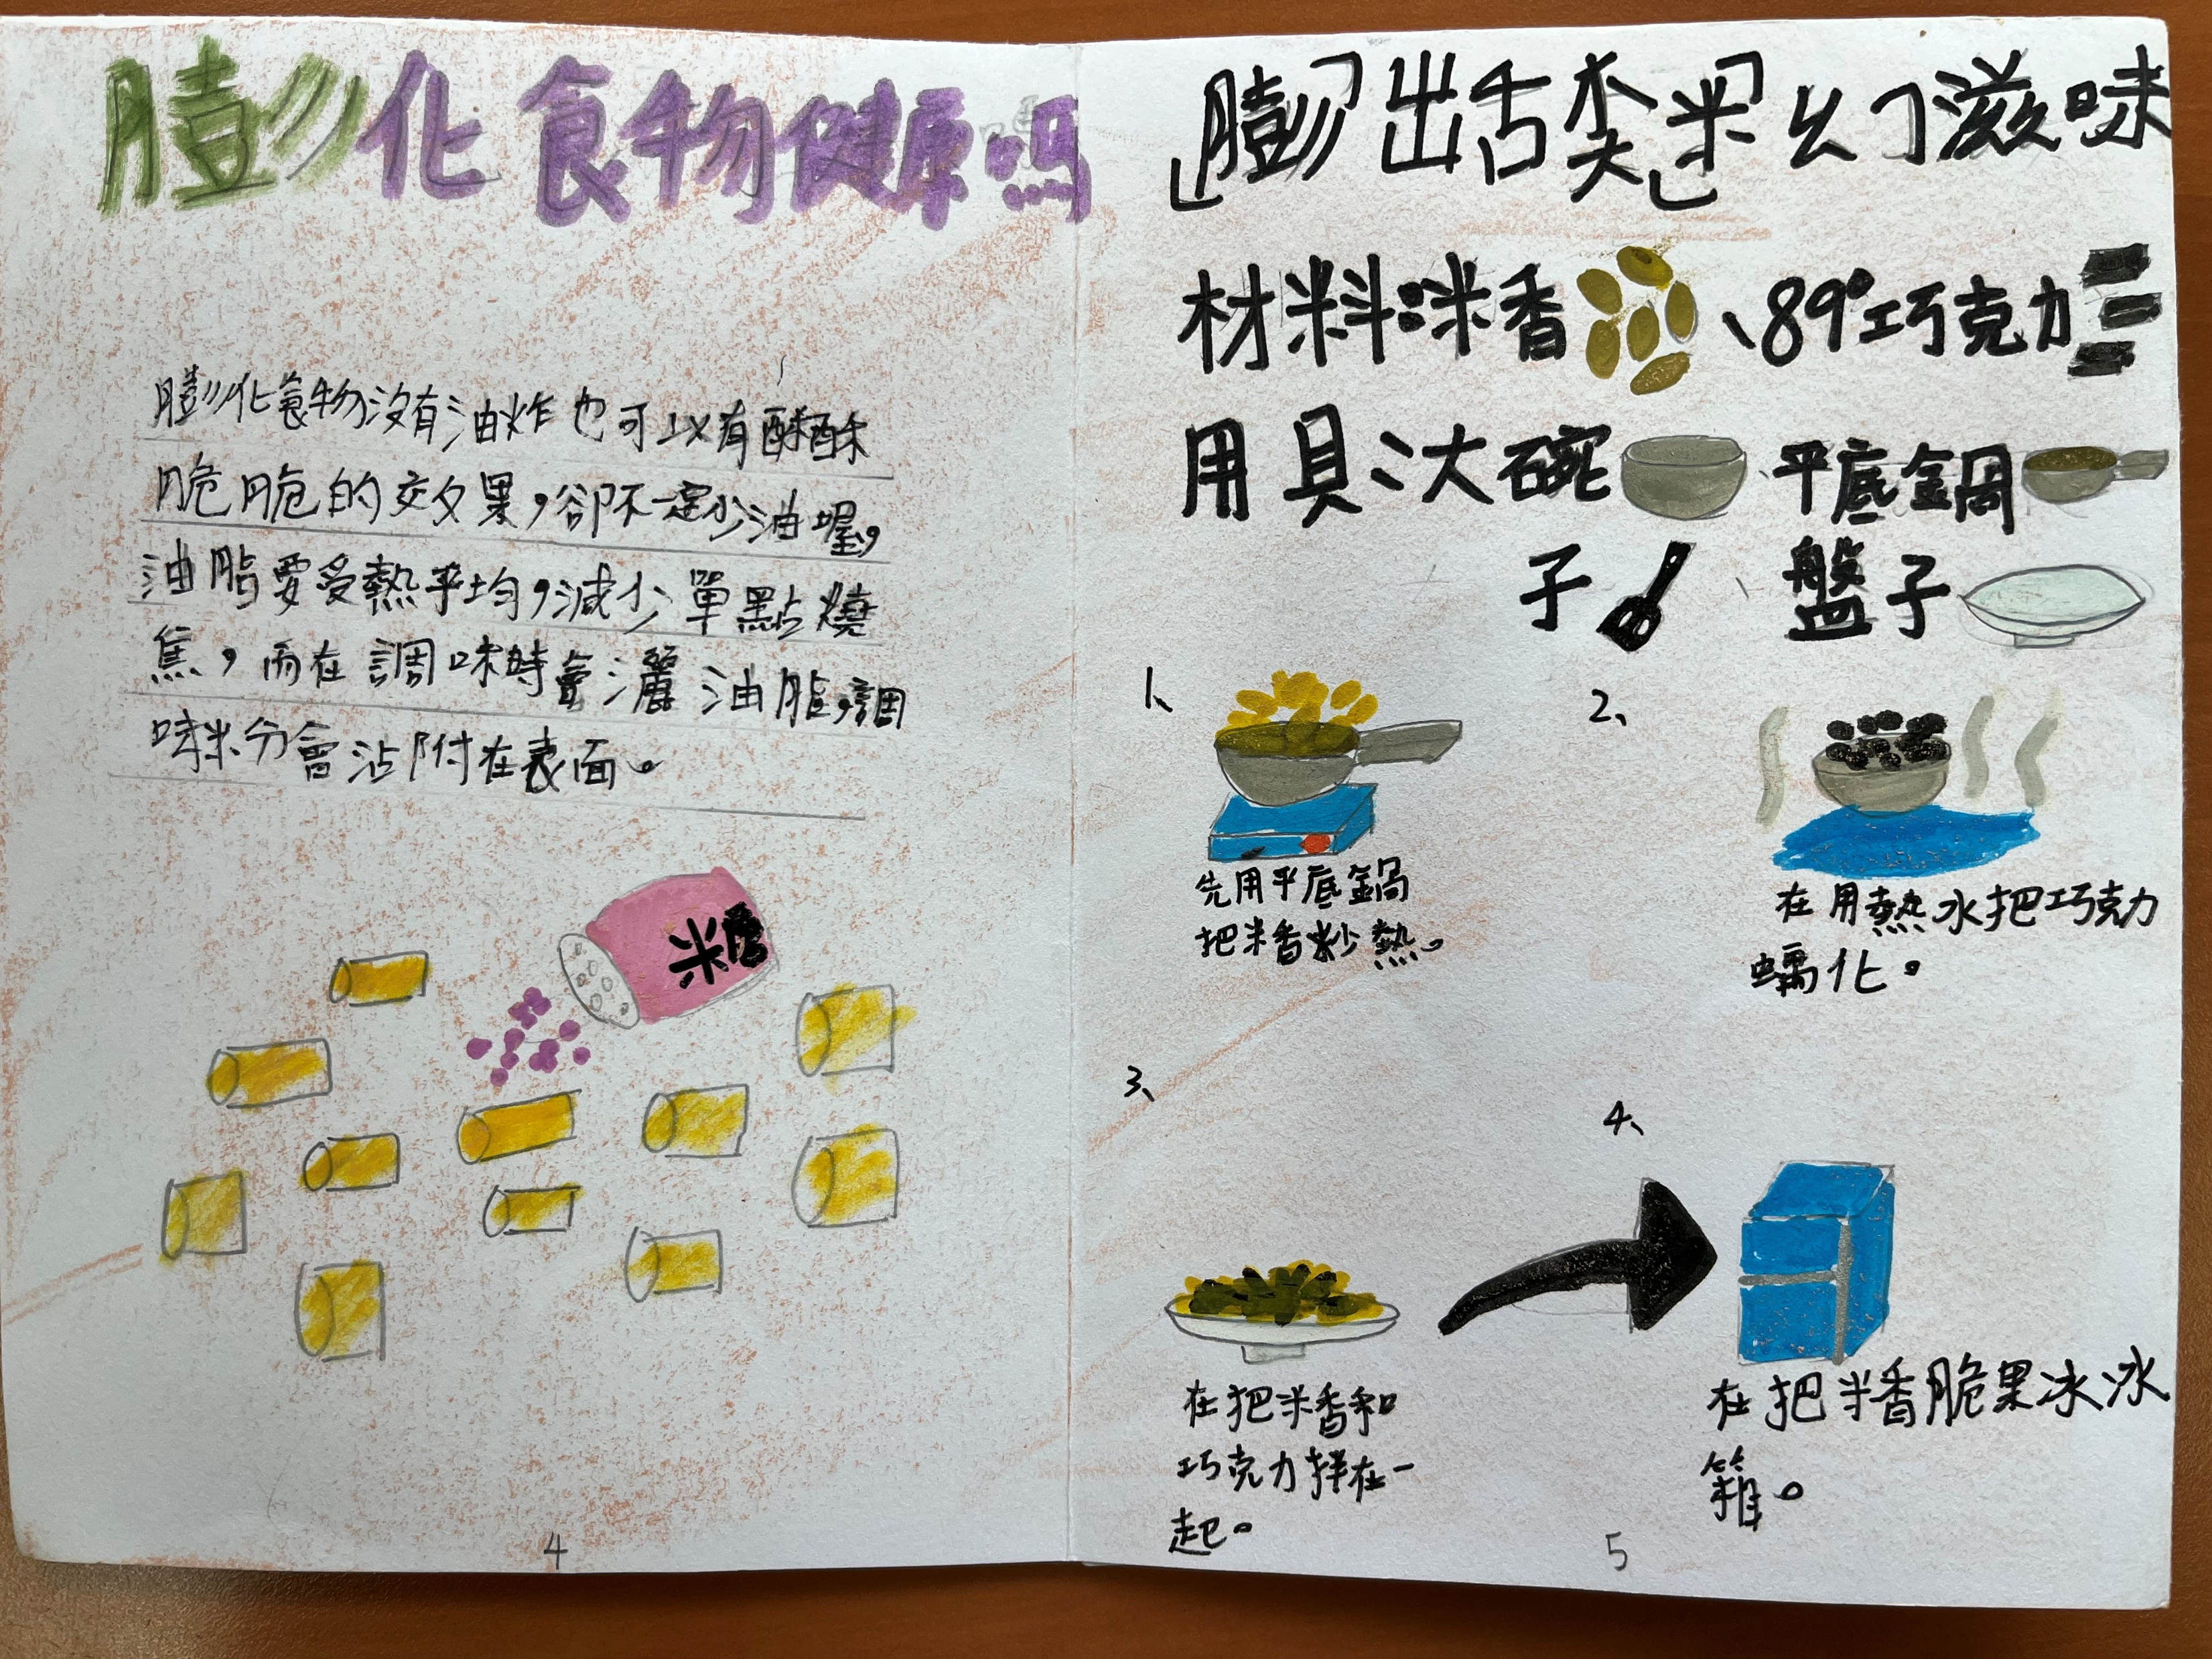 膨化食物健康嗎
膨化食物沒有油炸也可以有酥酥
脆脆的效果,卻不一定少油喔,
油脂要受熱平均,減少單點燒
焦,而在調味時會灑油脂,調
味粉會沾附在表面。
糖
4
「膨」出舌尖「米」幻滋味
材料:米香、89°巧克力
用具:大碗、平底鍋
子、盤子
1、
先用平底鍋
把米香炒熱。
2、
在用熱水把巧克力
融化。
3、
在把米香和
巧克力拌在一
起。
4、
在把米香脆果冰冰
箱。
5